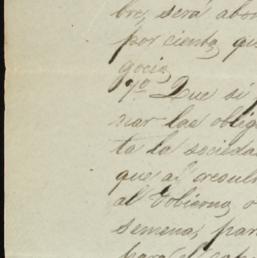 bre, será abo
por ciento, qu
gocio,
7º Que si
nar las oblig
ta la socieda
que al
al Gobierno, o
semena, par